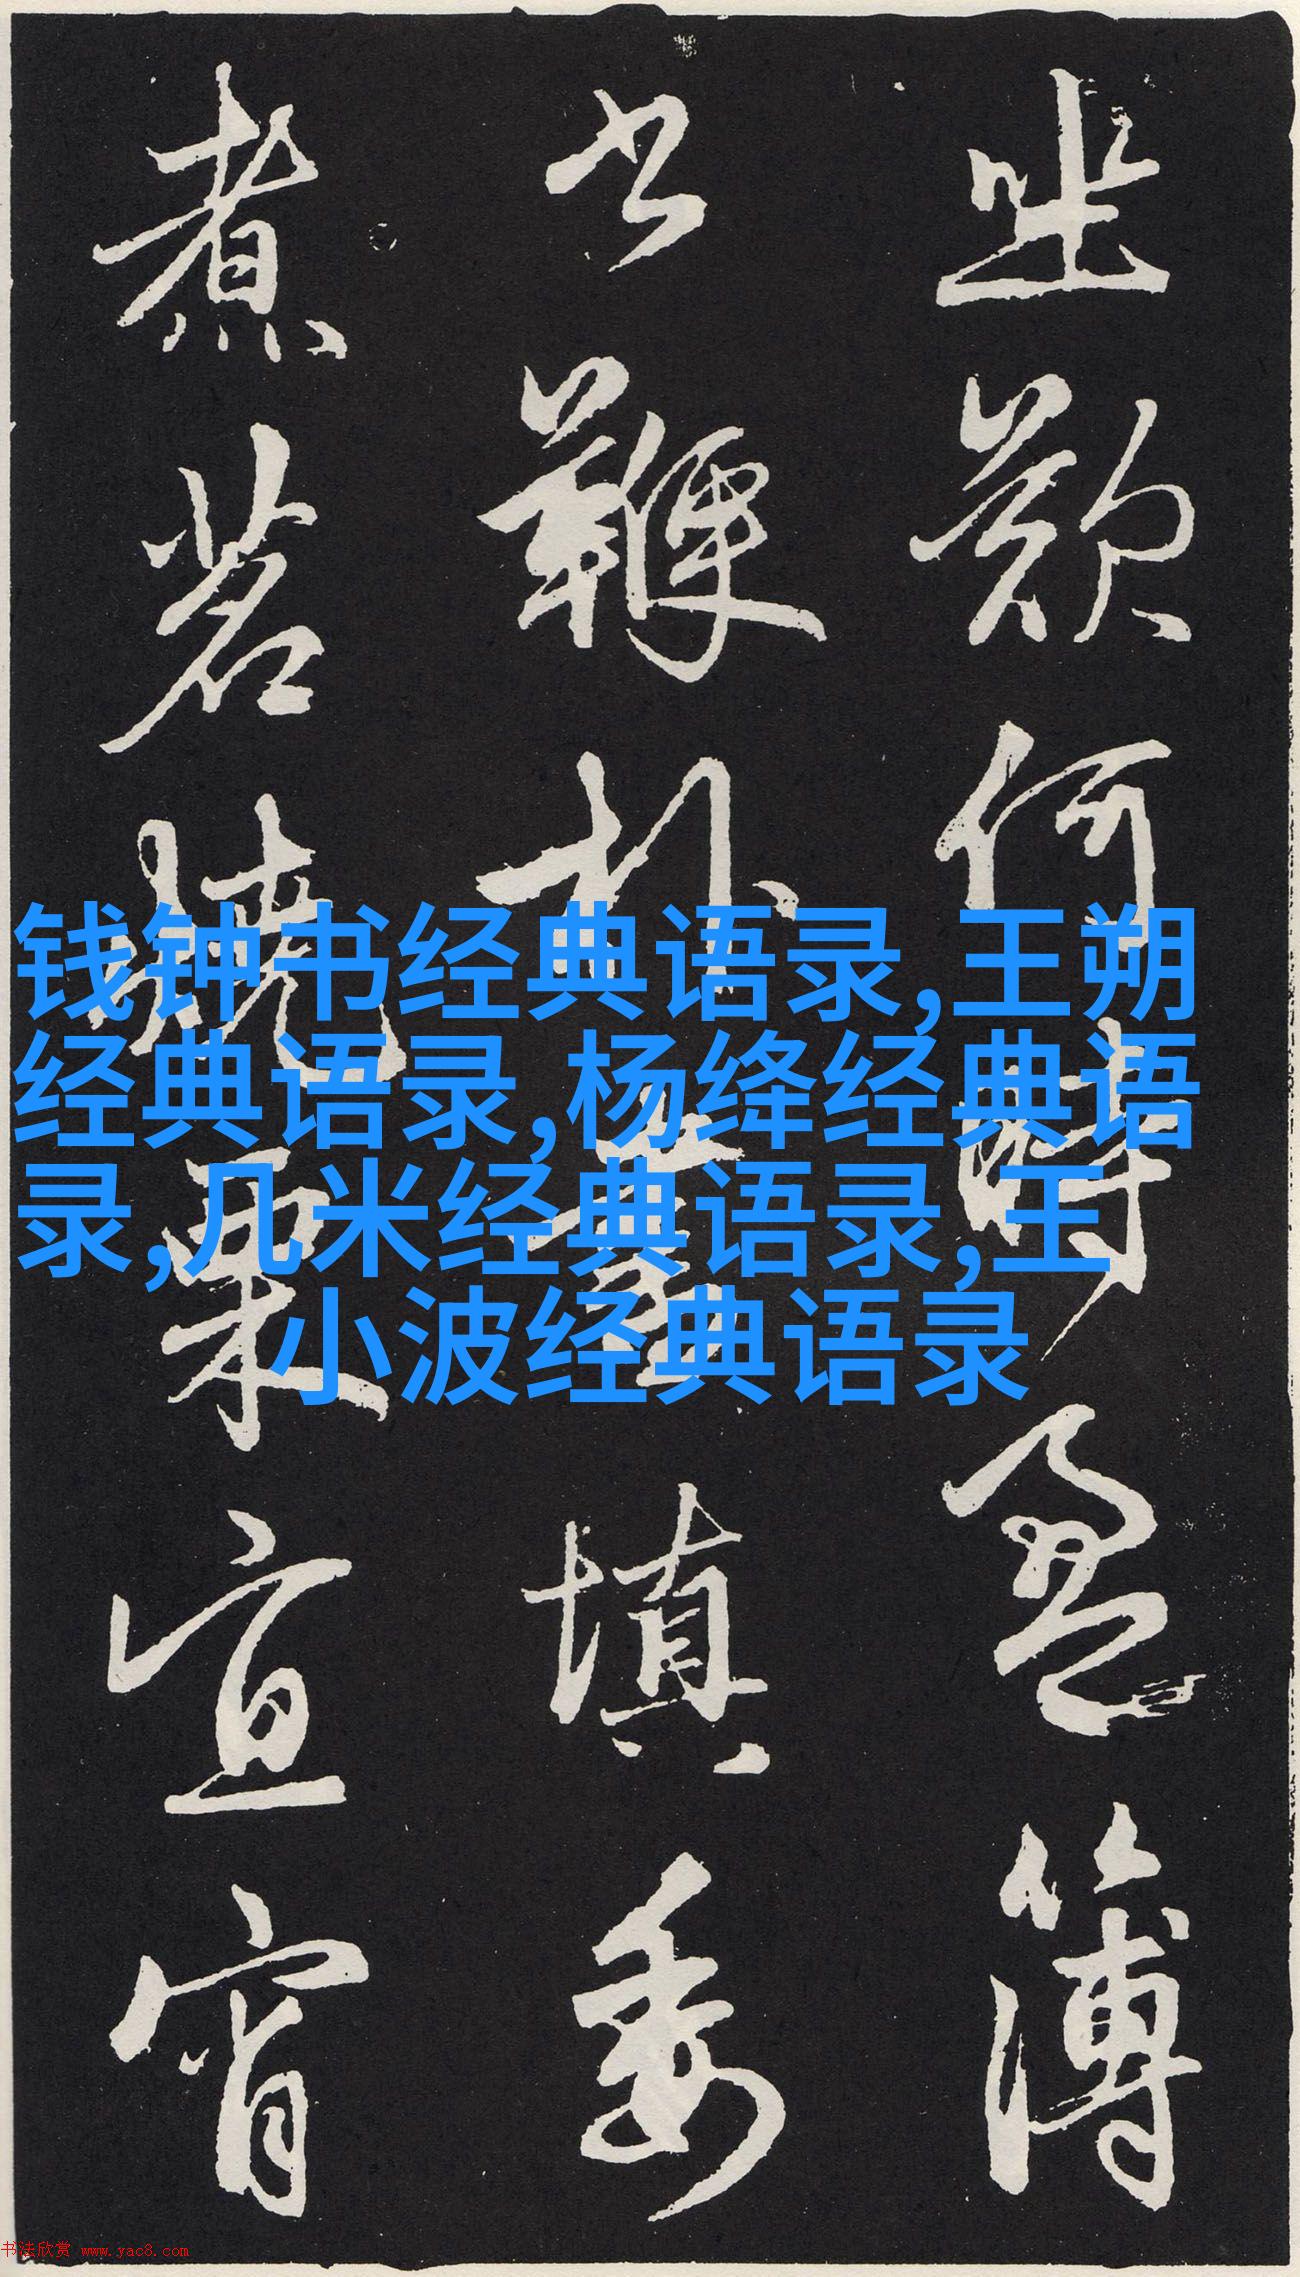 歎何時盈簿
書鞭扑晝填委
煮茗燒栗宜宵
钱钟书经典语录,王朔
经典语录,杨绛经典语
录,几米经典语录,王
小波经典语录
书法欣赏 www.yac8.com